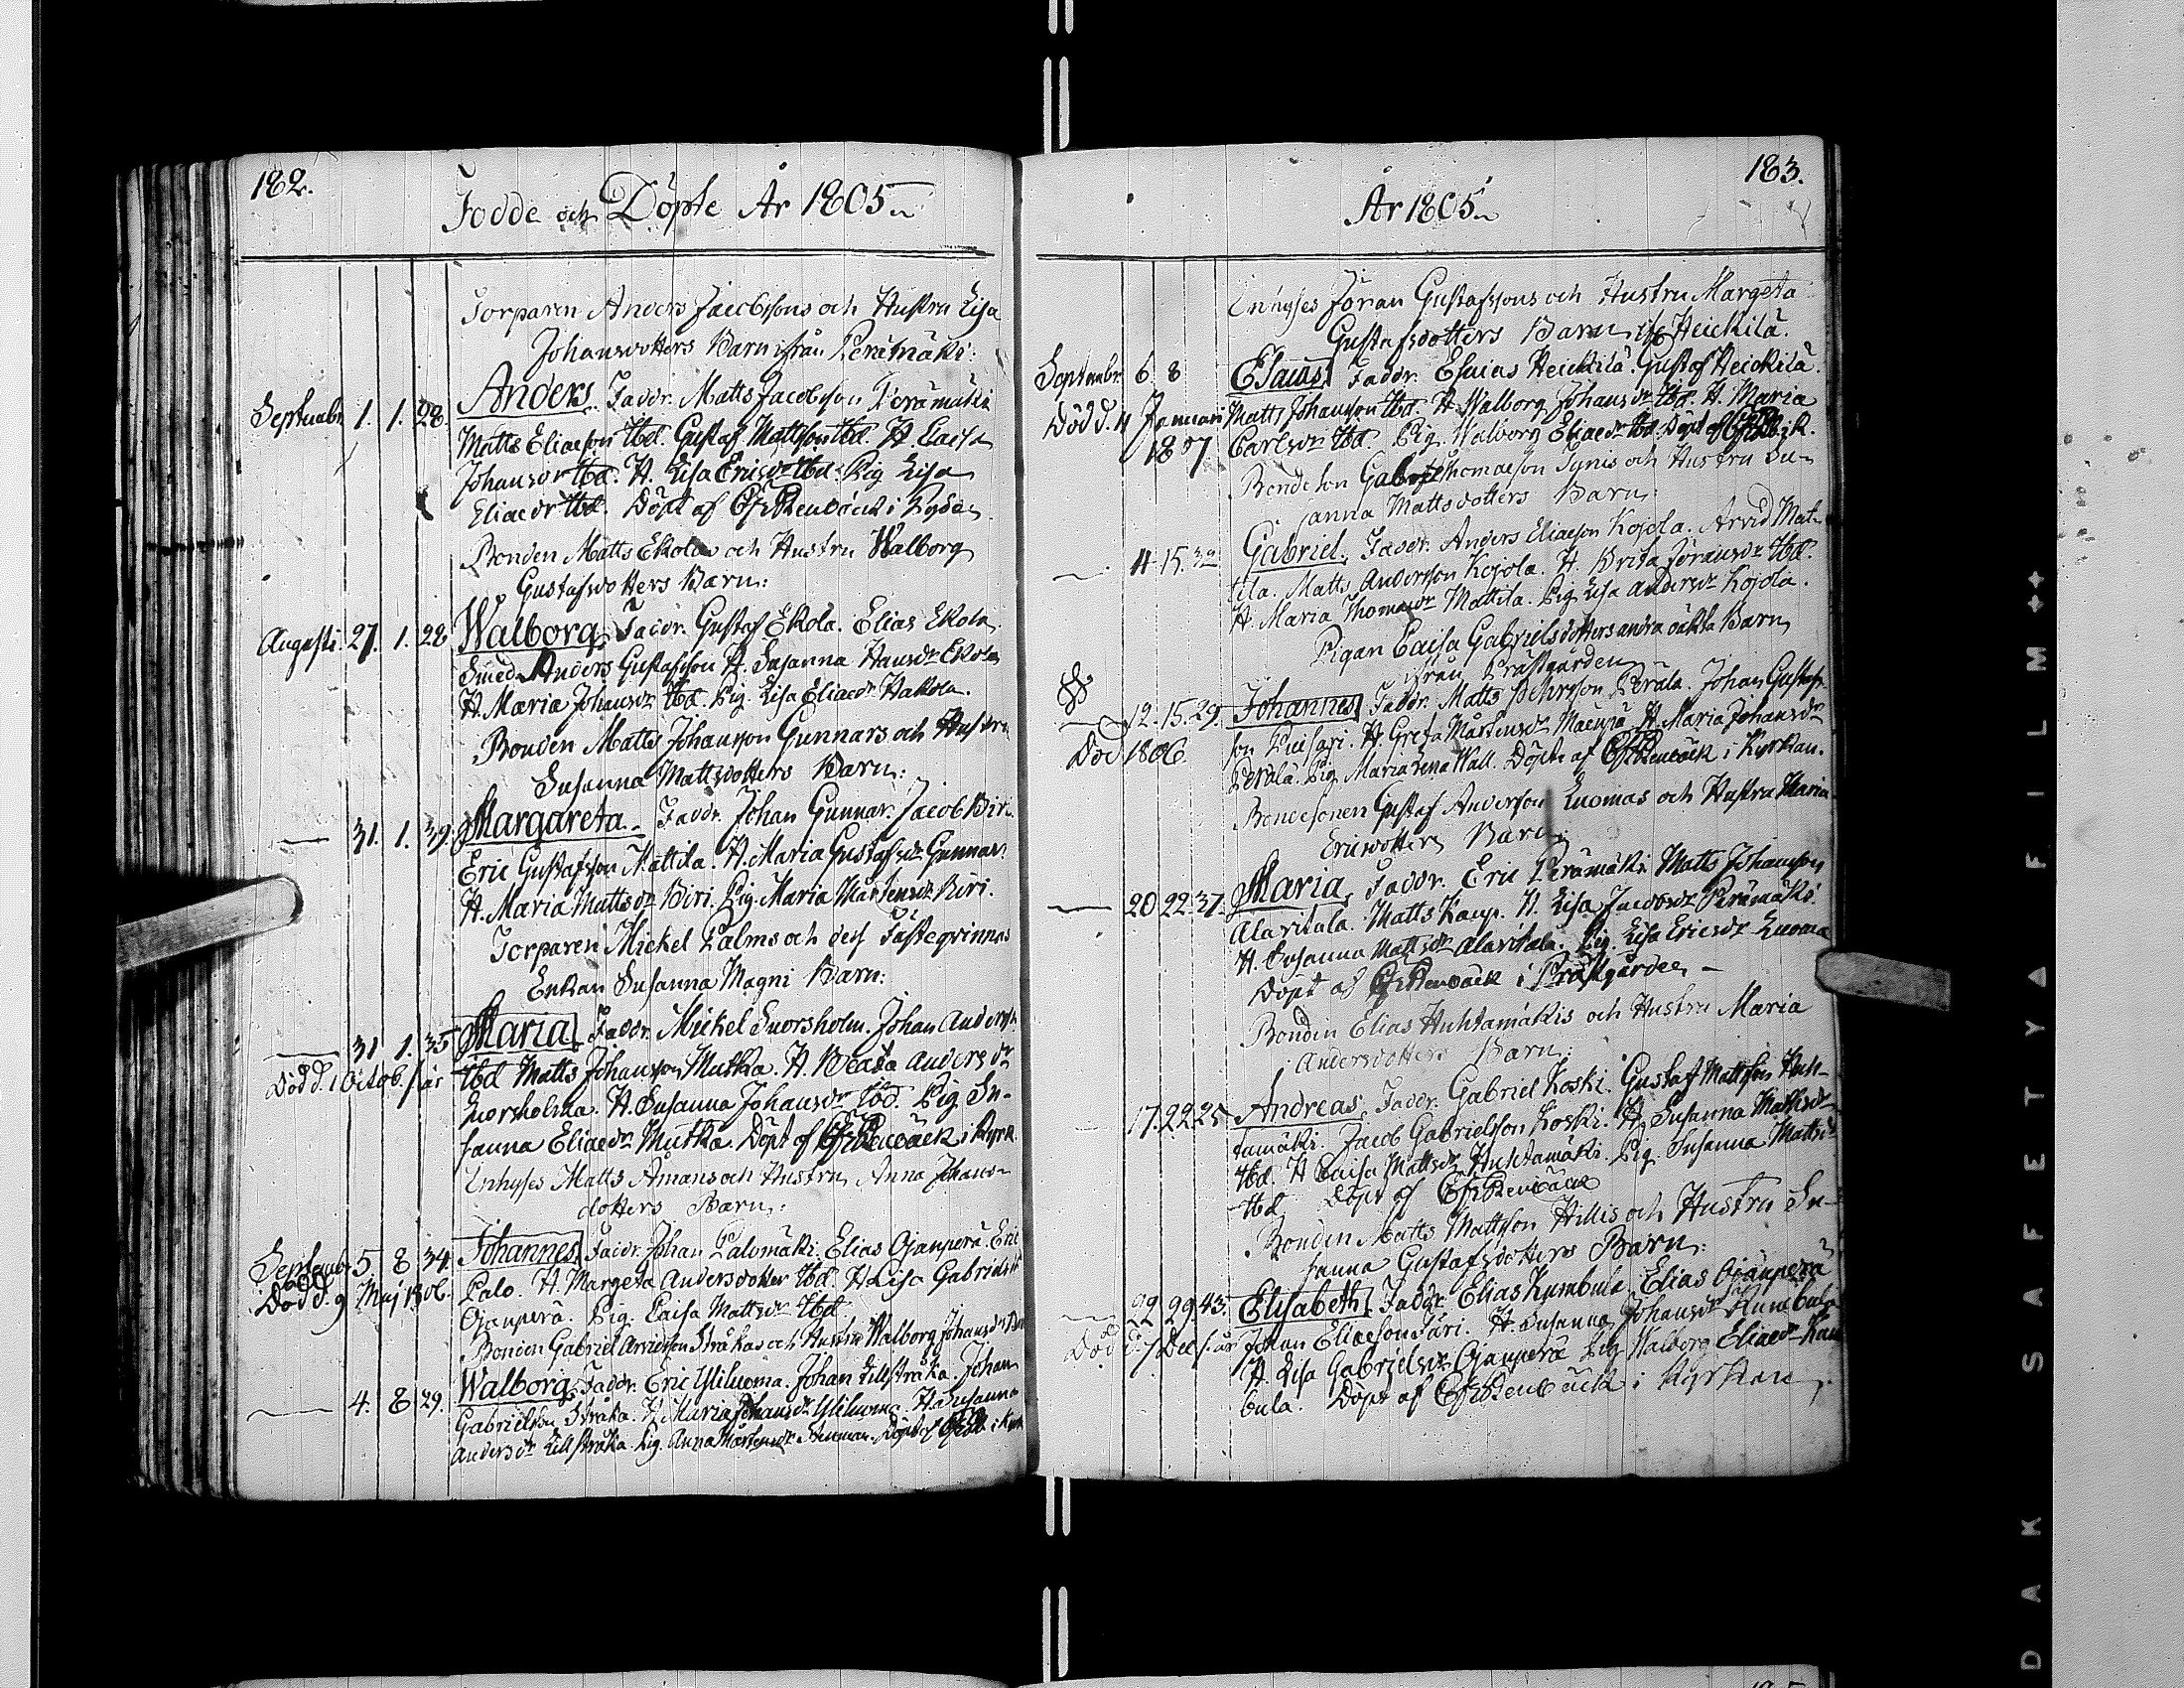 182.
Födde och Döpte År 1805
Torparen Anders Jacobssons och Hustru Lisa
Johansdotters Barn ifrån Perämäki:
Septembr 1. 1. 28. Anders. Faddr. Matts Jacobsson Perämäki
Matts Eliaesson Ibd. Gustaf Mattsson Ibd. H. Caisa
Johansdr Ibd. H. Lisa Ericsdr Ibd. Pig. Lisa
Eliaedr Ibd. Döpt af
Bonden Matts Ekolas och Hustru Walborg
Gustafsdotters Barn:
Augusti. 27. 1. 28 Walborg. Faddr. Gustaf Ekola. Elias Ekola
Smed. Anders Gustafsson H. Susanna Hansdr Ekola
H. Maria Johansdr Ibd. Pig. Lisa Eliaedr Hakola.
Bonden Matts Johansson Gunnars och Hustru
Susanna Mattsdotters Barn:
— 31. 1. 39. Margareta. Faddr. Johan Gunnar. Jacob Biri.
Eric Gustafsson Mattila. H. Maria Gustafsdr Gunnar.
H. Maria Mattsdr Biri. Pig. Maria Mårtensdr Biri.
Torparen Mickel Palms och dess Fästeqvinnas
Enkan Susanna Magni Barn:
— 31 1. 35 Maria. Faddr. Mickel Luorsholm. Johan Anderss.
Död d. 1 Octob. s. år Ibd Matts Johansson Mutka. H. Beata Andersdr
Luorsholma. H. Susanna Johansdr Ibd. Pig. Su-
sanna Eliaedr Mutka. Döpt af i Kyrk.
Enhyses Matts Åmans och Hustru Anna Johans-
dotters Barn:
Septembr 5 8 34. Johannes. Faddr. Johan Palomäki. Elias Ojanperä. Eric
Död d. 9 Maj 1806. Palo. H. Margeta Andersdotter Ibd. H Lisa Gabrielsdr
Ojanperä. Pig. Caisa Mattsdr Ibd
Bonden Gabriel Arvidsson Stråkas och Hustru Walborg Johansdrs Barn
— 4. 8 29. Walborg. Faddr. Eric Yliluoma. Johan Lillstråka. Johan
Gabrielsson Stråka. H. Maria Johansdr Yliluoma. H. Susanna
Andersdr Lillstråka. Pig. Anna Mårtensdr Döpt af i Kyrk
183.
År 1805
Enhyses Jöran Gustafssons och Hustru Margeta
Gustafsdotters Barn if. Heickilä.
Septembr. 6. 8 Esaias. Faddr. Esaias Heickilä. Gustaf Heickilä.
Död d. 4 Januari Matts Johansson Ibd. H. Walborg Johansdr Ibd. H. Maria
1807. Carlsdr Ibd. Pig. Walborg Eliaedr Ibd. Döpt af i K.
Bondeson Gabriel Thomaeson Tynis och Hustru Su-
sanna Mattsdotters Barn:
— 4. 15. 32 Gabriel. Faddr. Anders Eliaeson Kojola. Arvid Mat-
tila. Matts Andersson Kojola. H. Brita Jöransdr Ibd.
H. Maria Thomaedr Mattila. Pig. Lisa Andersdr Kojola.
Pigan Caisa Gabrielsdotters andra oäkta Barn
ifrån Prästgården
— 12. 15. 29. Johannes. Faddr. Matts Perälä. Johan Gustafs-
Död 1806. son Luisari. H. Greta Mårtensdr H. Maria Johansdr
Perälä. Pig. Maria Lena Wall. Döpt af i Kyrkan.
Bondesonen Gustaf Andersson Luomas och Hustru Maria
Ericsdotters Barn:
— 20 22. 37. Maria. Faddr. Eric Perämäki. Matts Johansson
Alaritala. Matts Kaup. H. Lisa Jacobsdr Perämäki.
H. Susanna Mattsdr Alaritala. Pig. Lisa Ericsdr Luoma
Döpt af i Prästgården —
Bonden Elias Huhtamäkis och Hustru Maria
Andersdotters Barn:
17. 22 25 Andreas. Faddr. Gabriel Koski. Gustaf Mattsson Huh-
tamäki. Jacob Gabrielsson Koski. H. Susanna Mattsdr
Ibd. H Caisa Mattsdr Huhtamäki. Pig. Susanna Mattsdr
Ibd. Döpt af
Bonden Matts Mattsson Hillis och Hustru Su-
sanna Gustafsdotters Barn:
— 22 29. 43. Elisabeth. Faddr. Elias Kumbula Elias Ojanperä
Död d. 7 Dec s. år Johan Eliaeson Järi. H. Susanna Johansdr Kumbula
H. Lisa Gabrielsdr Ojanperä Pig. Walborg Eliaedr Kum
bula. Döpt af i Kyrkan
DAK SAFETY FILM